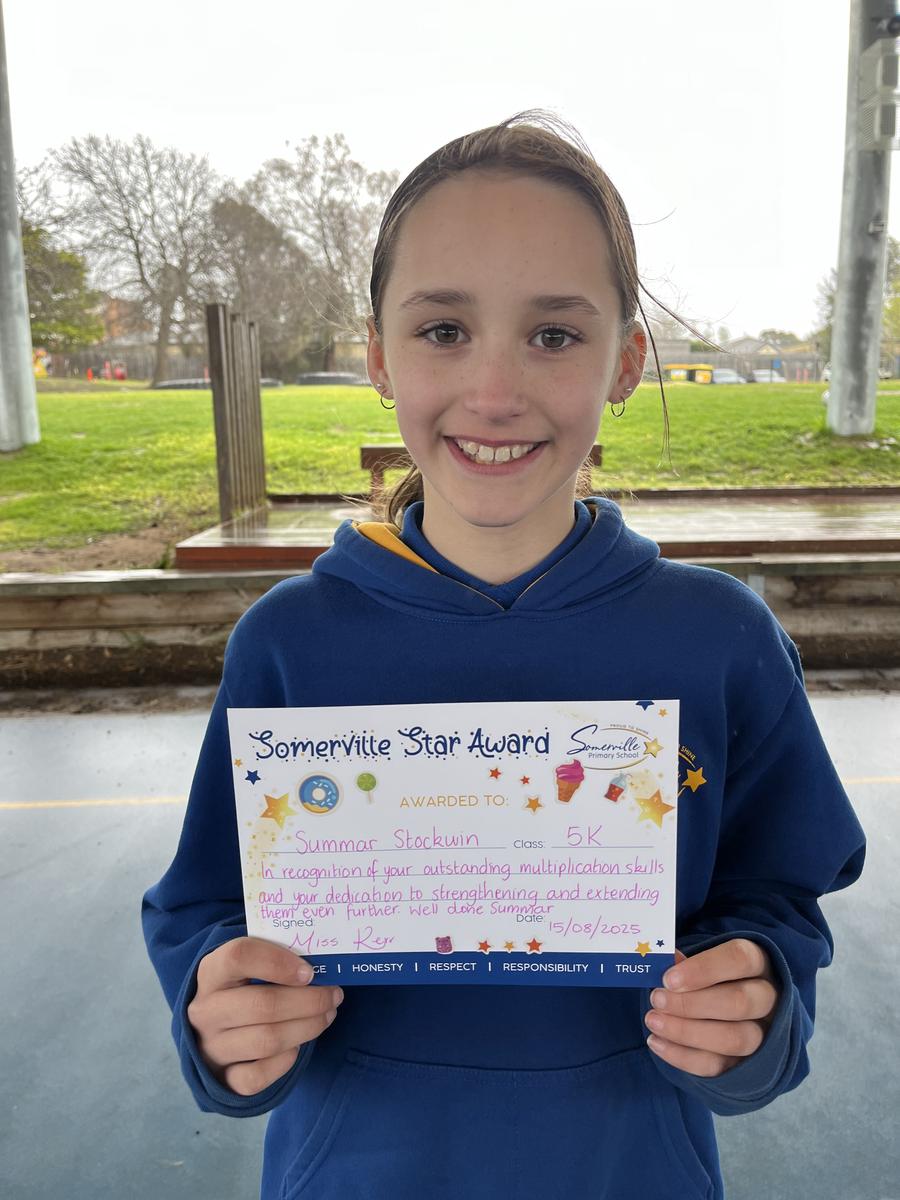 Somerville Star Award
PROUD TO SHINE
Somerville
Primary School
SHINE
AWARDED TO:
Summar Stockwin Class: 5K
In recognition of your outstanding multiplication skills
and your dedication to strengthening and extending
them even further. Well done Summar
Signed: Date: 15/08/2025
Miss Kerr
HONESTY | RESPECT | RESPONSIBILITY | TRUST